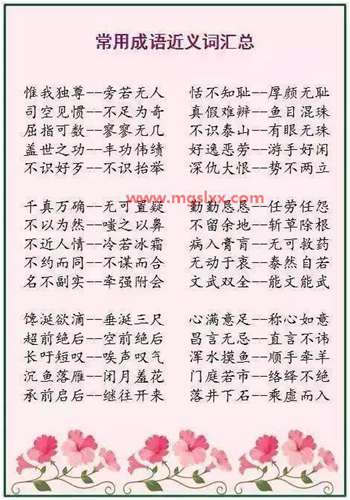 常用成语近义词汇总
惟我独尊--旁若无人 恬不知耻--厚颜无耻
司空见惯--不足为奇 真假难辨--鱼目混珠
屈指可数--寥寥无几 不识泰山--有眼无珠
盖世之功--丰功伟绩 好逸恶劳--游手好闲
不识好歹--不识抬举 深仇大恨--势不两立
www.mgslxx.com
千真万确--无可置疑 勤勤恳恳--任劳任怨
不以为然--嗤之以鼻 不留余地--斩草除根
不近人情--冷若冰霜 病入膏肓--无可救药
不约而同--不谋而合 无动于衷--泰然自若
名不副实--牵强附会 文武双全--能文能武
馋涎欲滴--垂涎三尺 心满意足--称心如意
超前绝后--空前绝后 昌言无忌--直言不讳
长吁短叹--唉声叹气 浑水摸鱼--顺手牵羊
沉鱼落雁--闭月羞花 门庭若市--络绎不绝
承前启后--继往开来 落井下石--乘虚而入